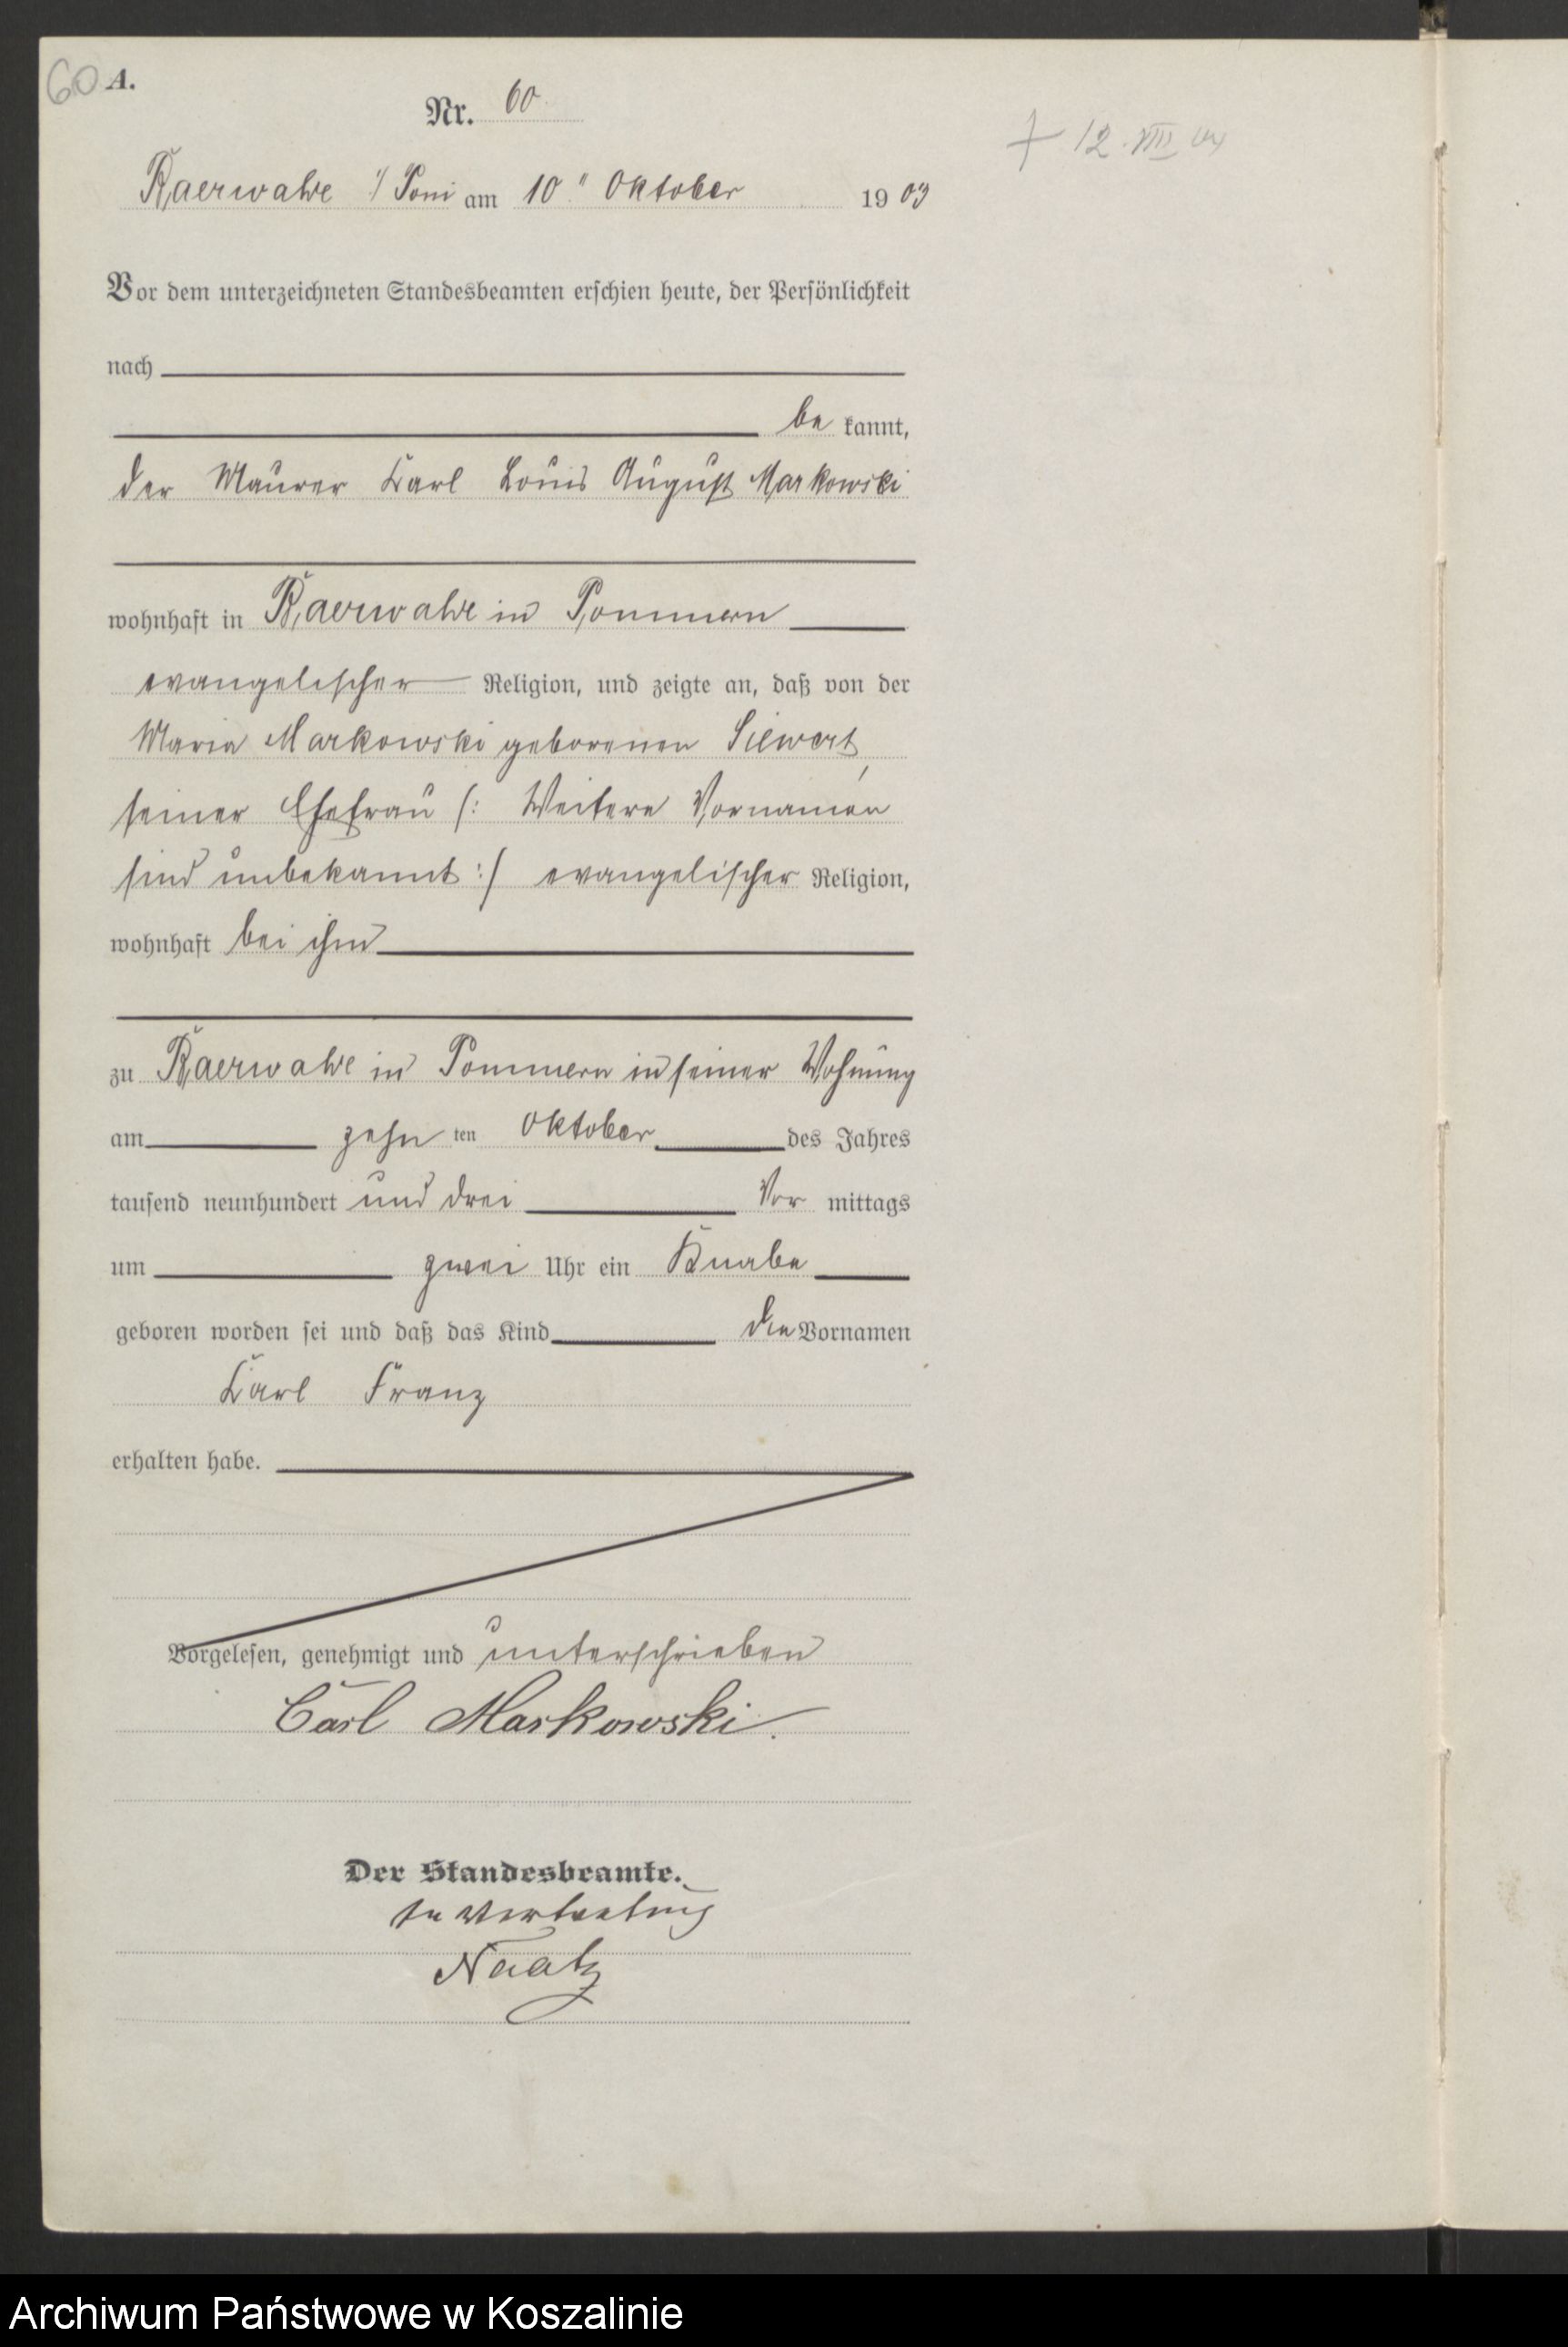 60 A.
Nr. 60
+ 12. VIII 04
Baerwalde i/ Pom am 10" Oktober 1903
Vor dem unterzeichneten Standesbeamten erschien heute, der Persönlichkeit
nach
be kannt,
der Maurer Karl Louis August Markowski
wohnhaft in Baerwalde in Pommern
evangelischer Religion, und zeigte an, daß von der
Maria Markowski geborenen Siewert,
seiner Ehefrau /: Weitere Vornamen
sind unbekannt :/ evangelischer Religion,
wohnhaft bei ihm
zu Baerwalde in Pommern in seiner Wohnung
am zehn ten Oktober des Jahres
tausend neunhundert und drei Vor mittags
um zwei Uhr ein Knabe
geboren worden sei und daß das Kind die Vornamen
Karl Franz
erhalten habe.
Vorgelesen, genehmigt und unterschrieben
Carl Markowski.
Der Standesbeamte.
In Vertretung
Naatz
Archiwum Państwowe w Koszalinie